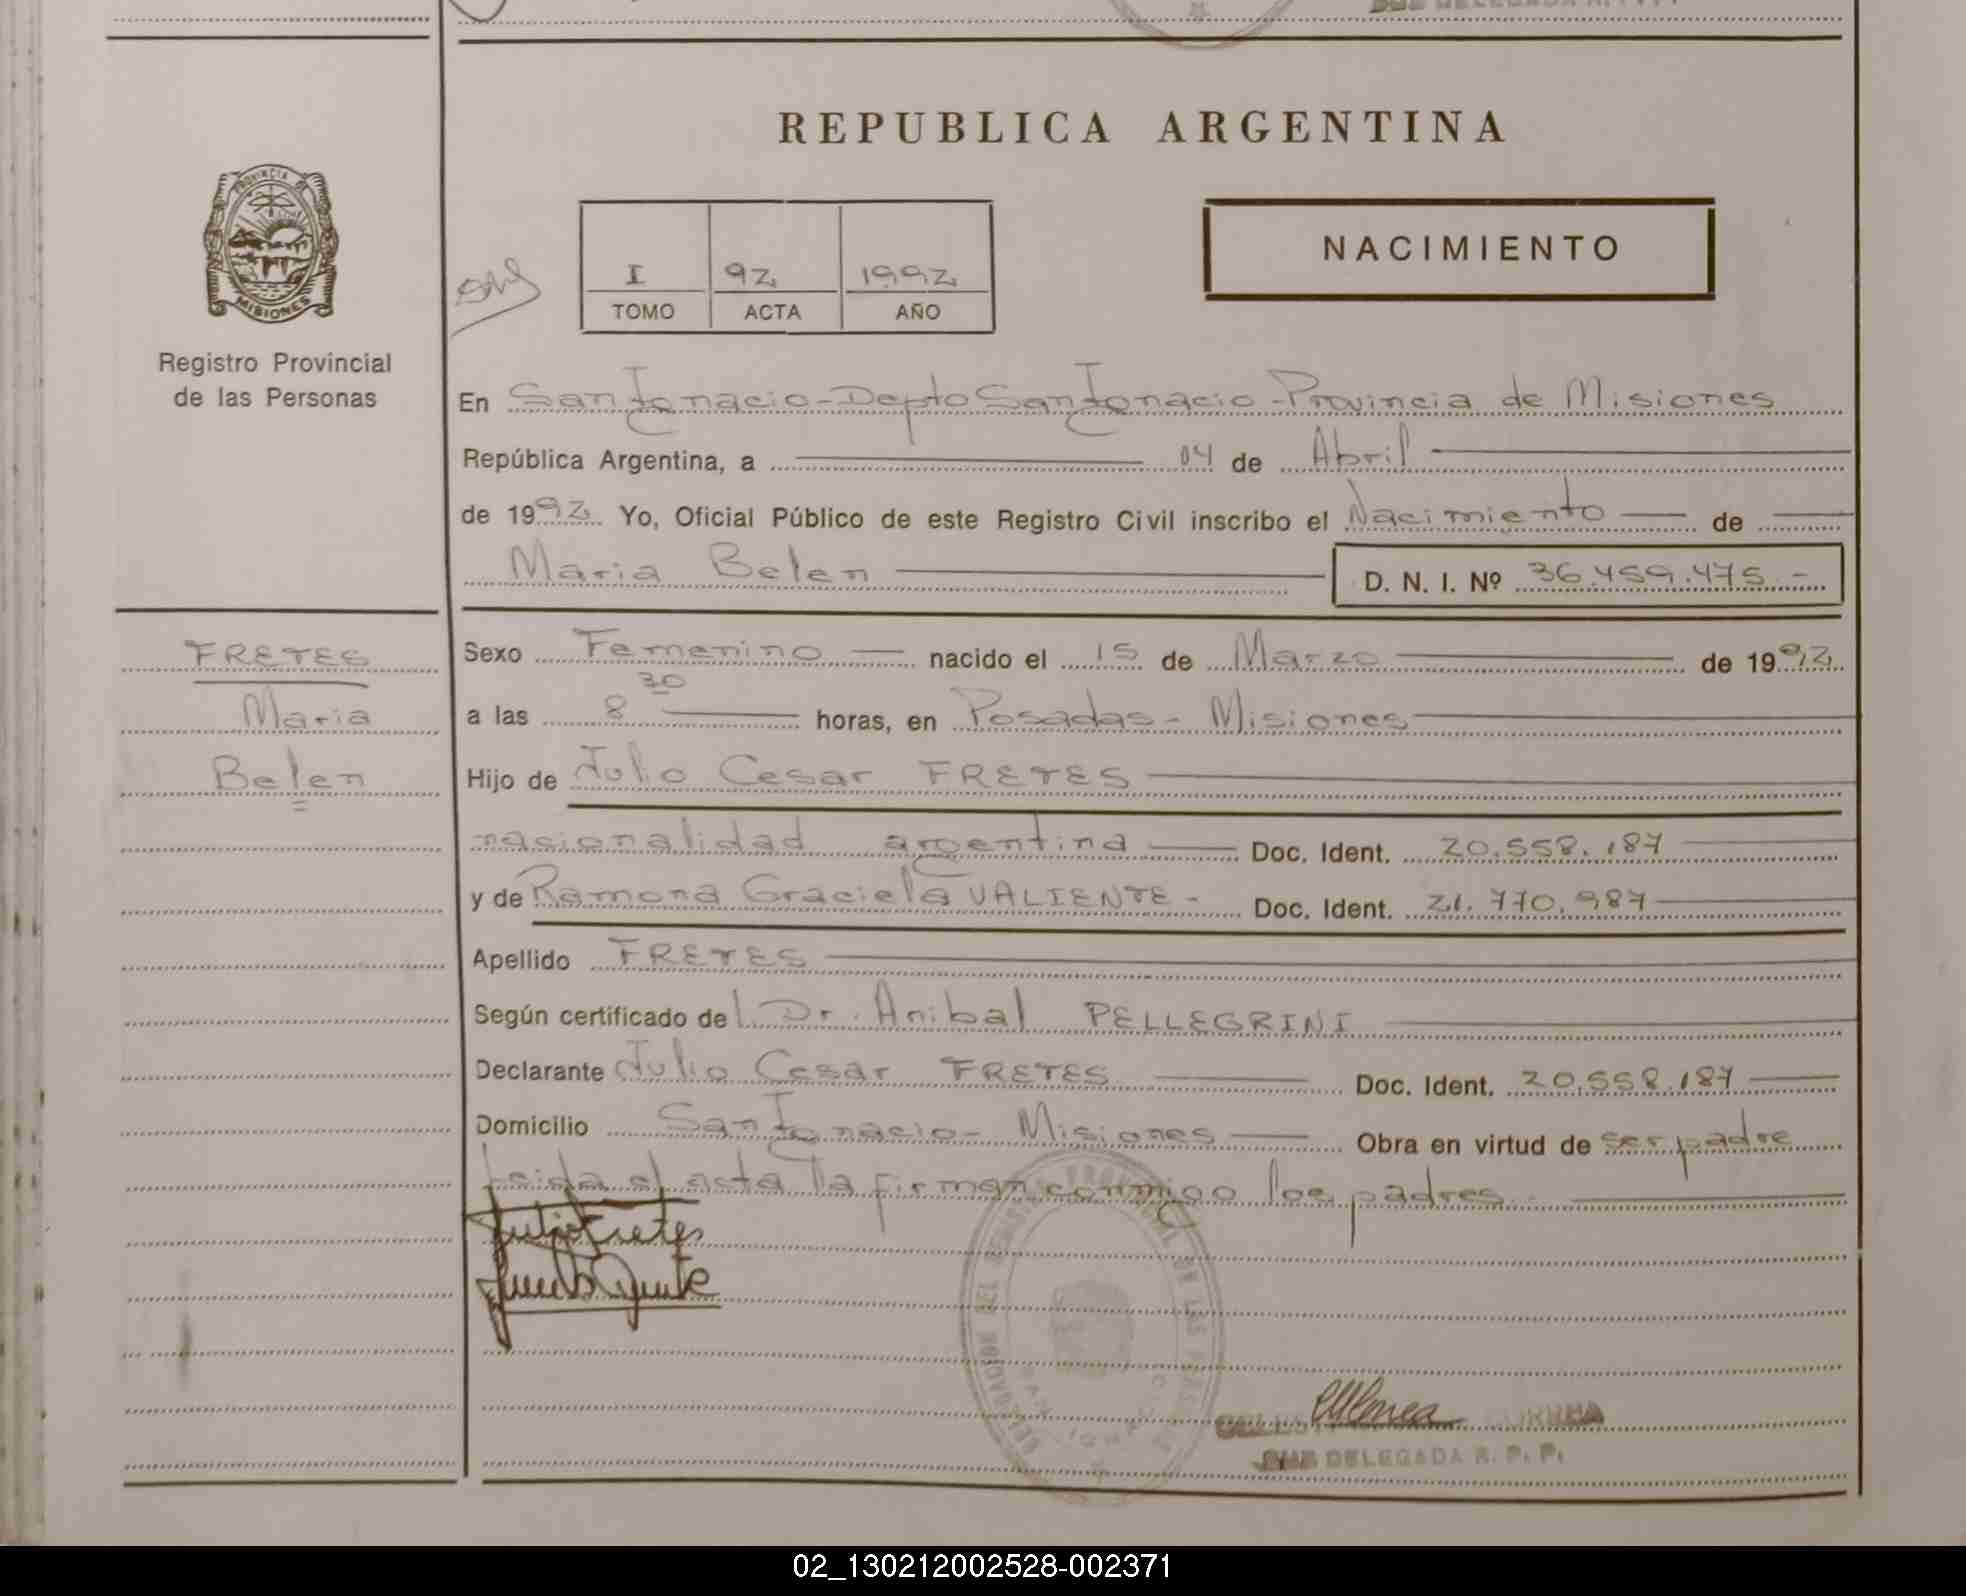 SUB DELEGADA R. P. P.
REPUBLICA ARGENTINA
PROVINCIA DE
MISIONES
Registro Provincial
de las Personas
I 92 1992
TOMO ACTA AÑO
NACIMIENTO
En San Ignacio - Depto San Ignacio - Provincia de Misiones
República Argentina, a 04 de Abril
de 1992 Yo, Oficial Público de este Registro Civil inscribo el Nacimiento de
Maria Belen D. N. I. Nº 36.459.475.-
FRETES
Maria
Belen
Sexo Femenino nacido el 15 de Marzo de 1992
a las 8 30 horas, en Posadas - Misiones
Hijo de Julio Cesar FRETES
nacionalidad argentina Doc. Ident. 20.558.187
y de Ramona Graciela VALIENTE - Doc. Ident. 21.770.987
Apellido FRETES
Según certificado del Dr. Anibal PELLEGRINI
Declarante Julio Cesar FRETES Doc. Ident. 20.558.187
Domicilio San Ignacio - Misiones Obra en virtud de ser padre
Leida el acta la firman conmigo los padres.
Julio Fretes
SUB DELEGADA R. P. P.
02_130212002528-002371